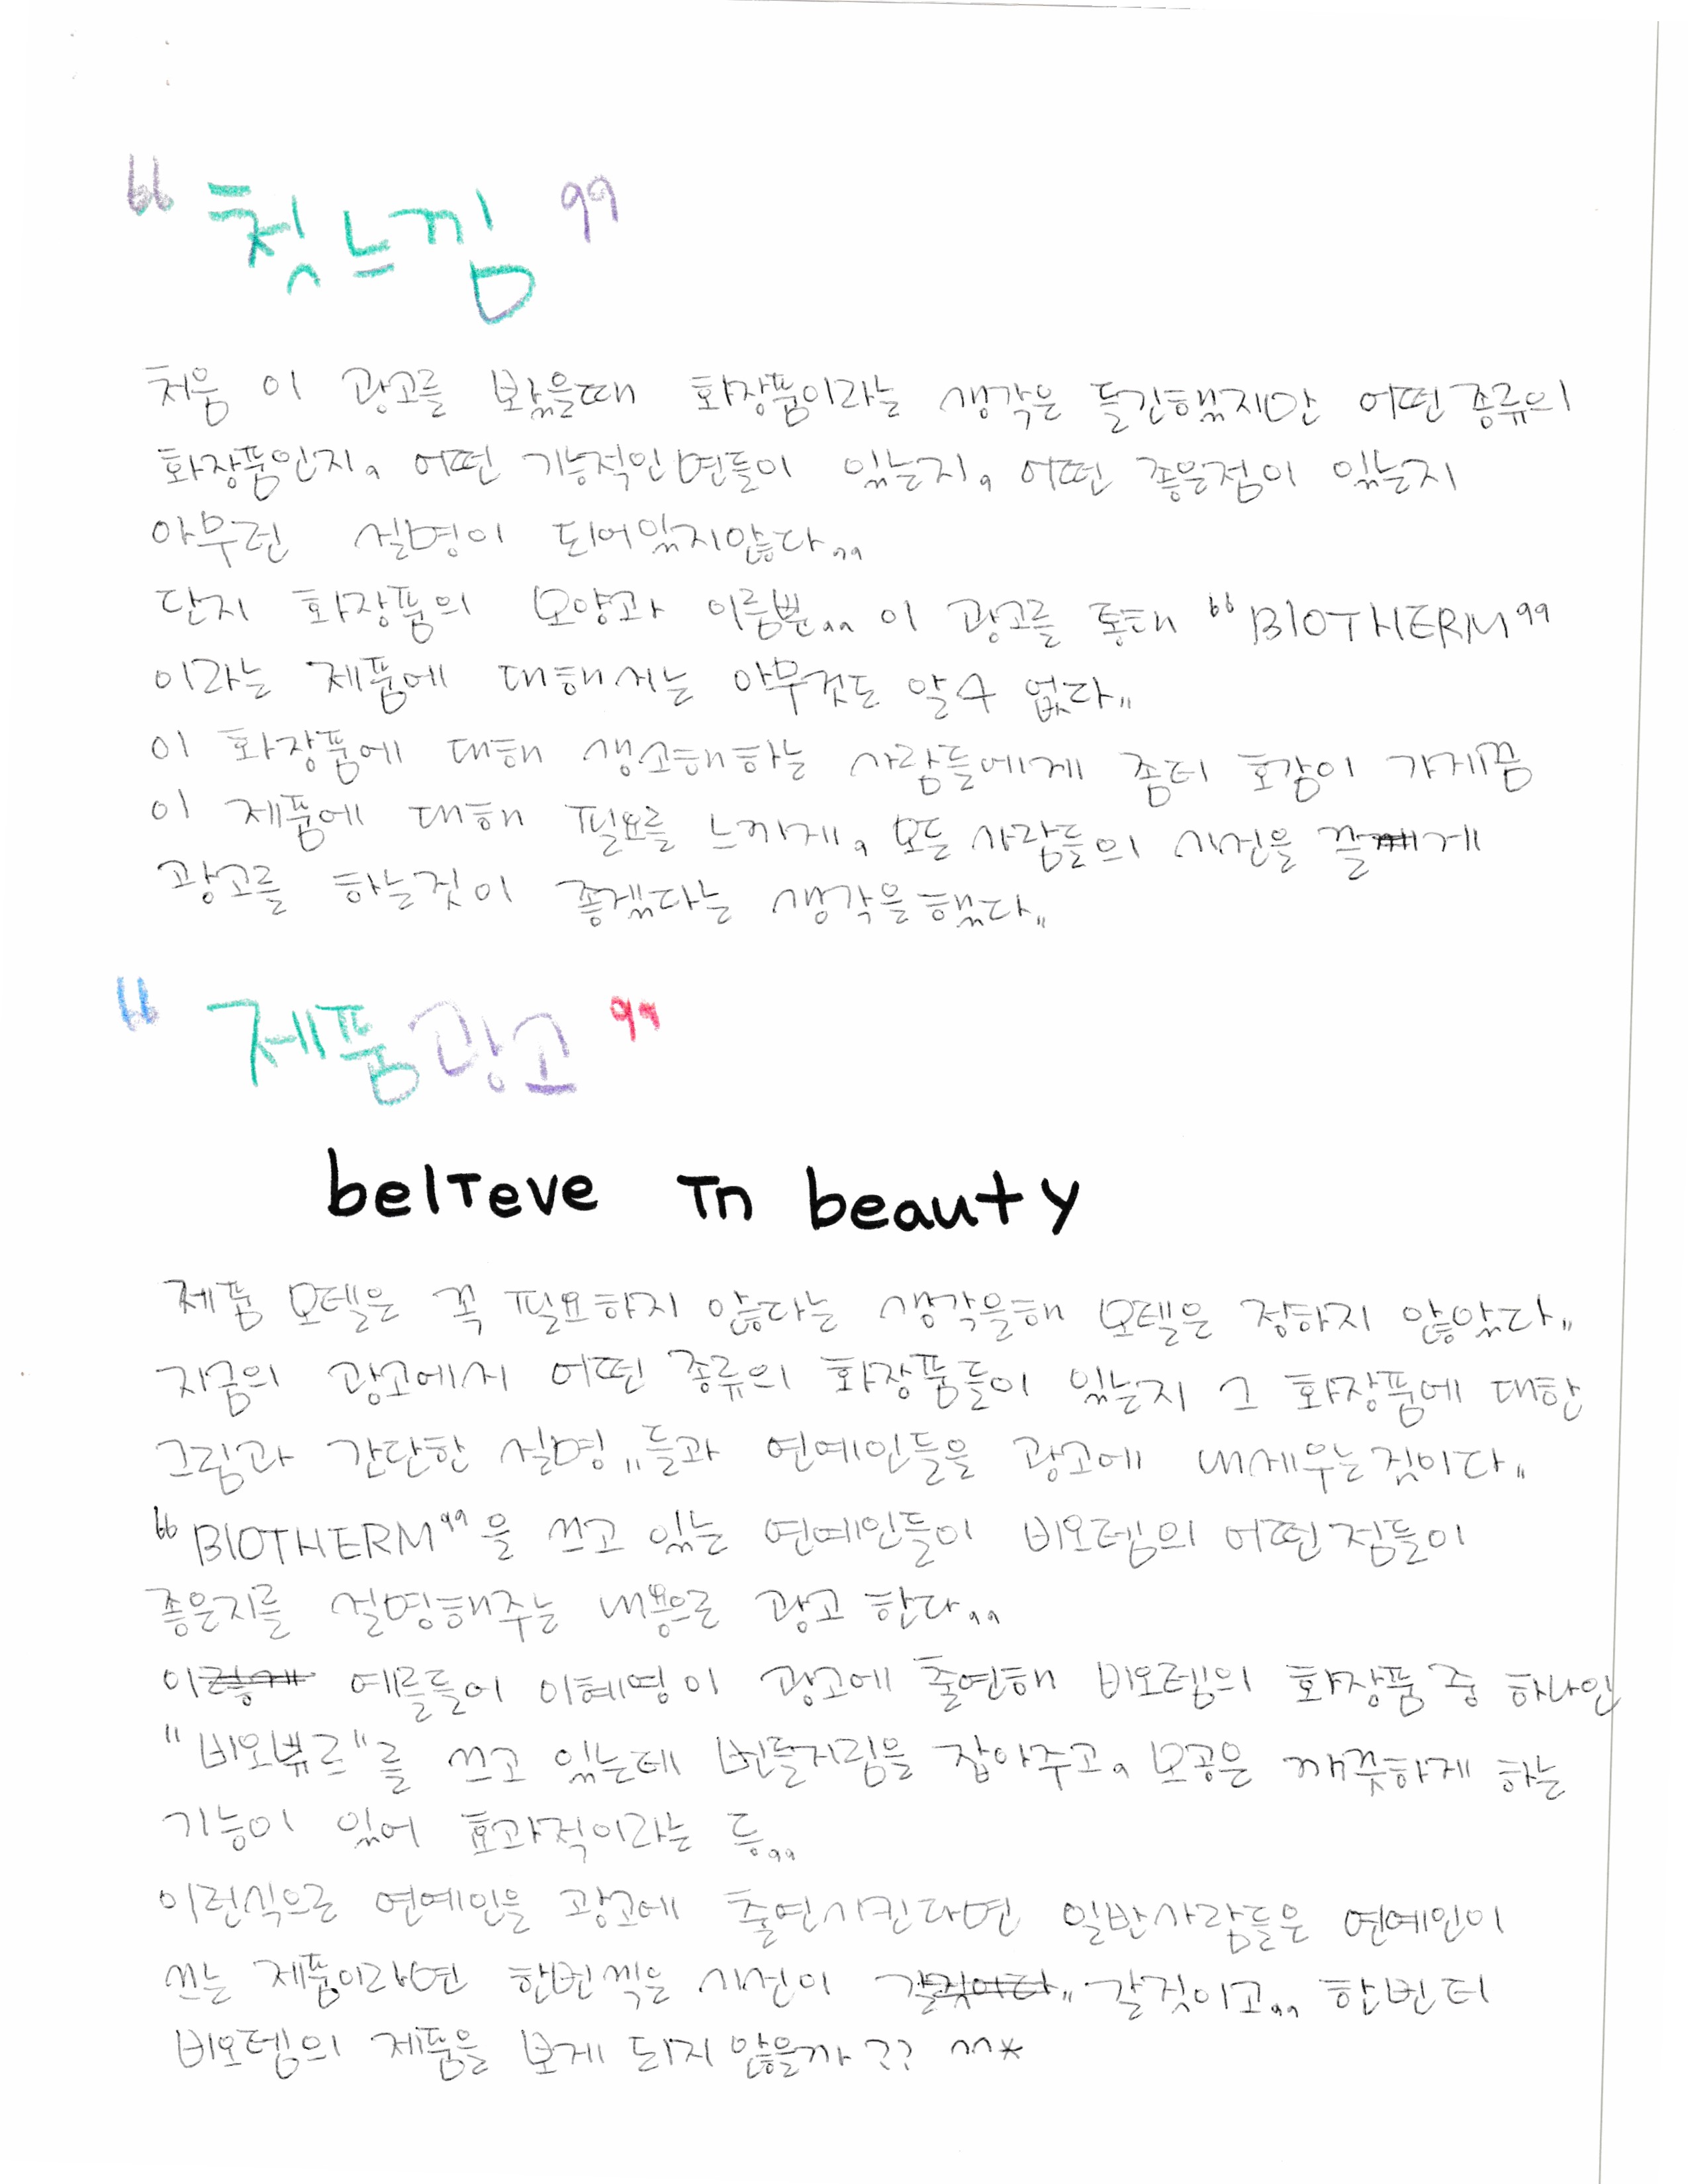 “ 첫느낌 ”
처음 이 광고를 봤을때 화장품이라는 생각은 들긴했지만 어떤종류의
화장품인지, 어떤 기능적인면들이 있는지, 어떤 좋은점이 있는지
아무런 설명이 되어있지않다,,
단지 화장품의 모양과 이름뿐,, 이 광고를 통해 “BIOTHERM”
이라는 제품에 대해서는 아무것도 알수 없다,,
이 화장품에 대해 생소해하는 사람들에게 좀더 호감이 가게끔
이 제품에 대해 필요를 느끼게, 모든 사람들의 시선을 끌게
광고를 하는것이 좋겠다는 생각을했다,,
“ 제품광고 ”
believe in beauty
제품 모델은 꼭 필요하지 않다는 생각을해 모델은 정하지 않았다,,
지금의 광고에서 어떤 종류의 화장품들이 있는지 그 화장품에 대한
그림과 간단한 설명,,들과 연예인들을 광고에 내세우는것이다,,
“BIOTHERM”을 쓰고 있는 연예인들이 비오템의 어떤점들이
좋은지를 설명해주는 내용으로 광고 한다,,
예를들어 이혜영이 광고에 출연해 비오템의 화장품 중 하나인
"비오뷰르"를 쓰고 있는데 번들거림을 잡아주고, 모공은 깨끗하게 하는
기능이 있어 효과적이라는 등,,
이런식으로 연예인을 광고에 출연시킨다면 일반사람들은 연예인이
쓰는 제품이라면 한번씩은 시선이 갈것이고,, 한번 더
비오템의 제품을 보게 되지 않을까?? ^^*